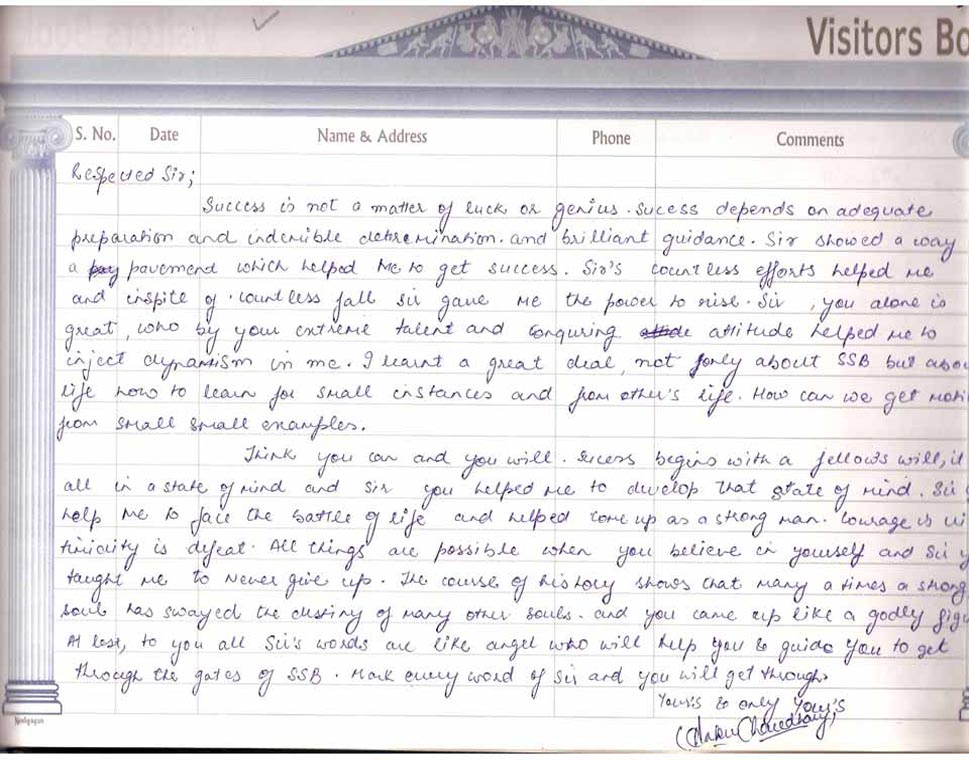 Visitors Bo
S. No. Date Name & Address Phone Comments
Respected Sir;
Success is not a matter of luck or genius. Sucess depends on adequate
preparation and indenible detremination. and brilliant guidance. Sir showed a way
a pavement which helped me to get success. Sir's countless efforts helped me
and inspite of. countless fall sir gave me the power to rise. Sir , you alone is
great, who by your extreme talent and conquring attitude helped me to
inject dynamism in me. I learnt a great deal, not only about SSB but abou
life how to learn for small instances and from other's life. How can we get moti
from small small examples.
Think you can and you will. Sucess begins with a fellow's will, it
all in a state of mind and Sir you helped me to develop that state of mind. Sir
help me to face the battle of life and helped come up as a strong man. Courage is wi
timicity is defeat. All things are possible when you believe in yourself and Sir y
taught me to never give up. The course of history shows that many a times a strong
soul has swayed the destiny of many other souls. and you came up like a godly figu
At last, to you all Sir's words are like angel who will help you & guide you to get
through the gates of SSB. Mark every word of Sir and you will get through.
Your's & only Your's
Chaudhary